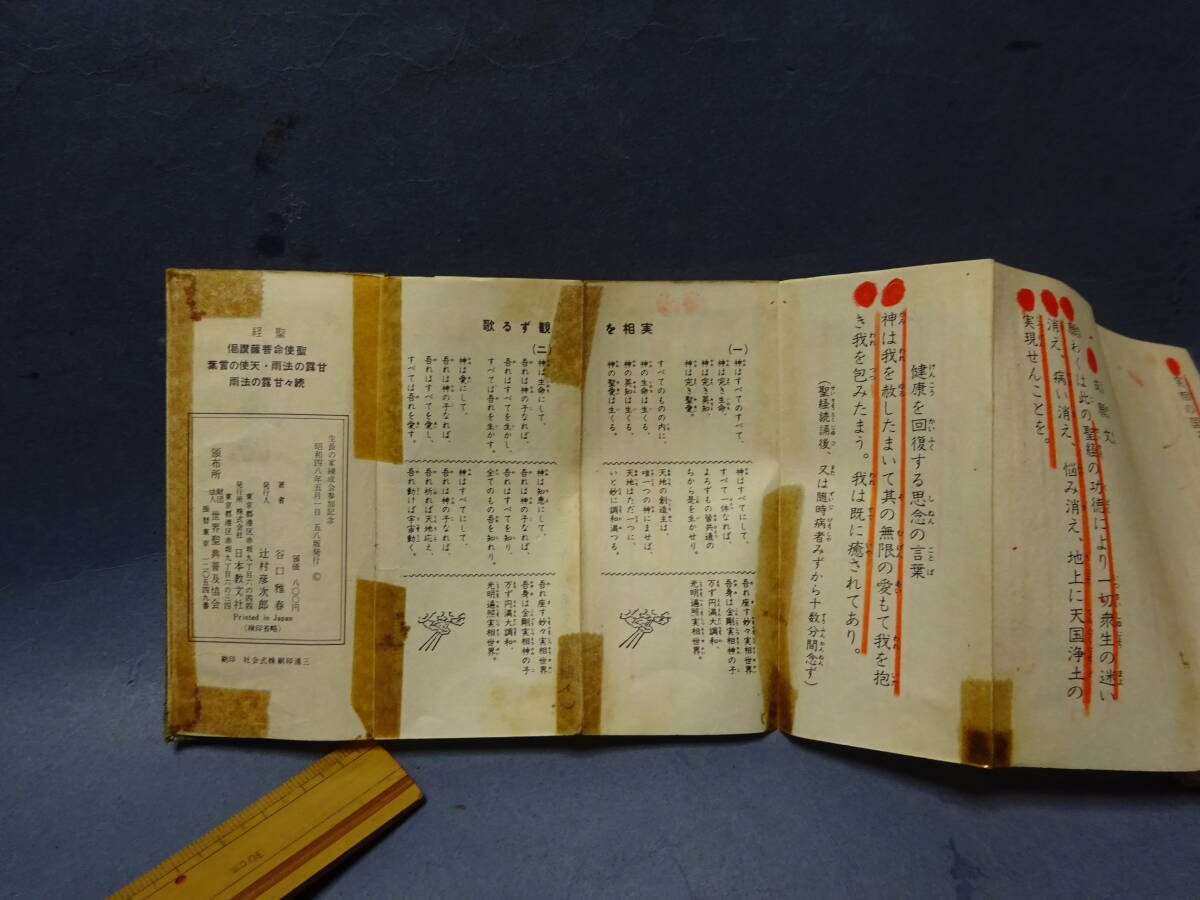 実現せん
成願文
願わくは此の聖経の功徳により一切衆生の迷い
消え、病い消え、悩み消え、地上に天国浄土の
実現せんことを。
健康を回復する思念の言葉
神は我を赦したまいて其の無限の愛もて我を抱
き我を包みたまう。我は既に癒されてあり。
(聖経読誦後、又は随時病者みずから十数分間念ず)
実相を観ずる歌
(一)
神はすべてのすべて、
神は完き生命、
神は完き英知、
神は完き聖愛。
すべてのものの内に、
神の生命は生くる、
神の英知は生くる、
神の聖愛は生くる。
神はすべてにして、
すべて一体なれば、
よろずもの皆共通の
ちから是を生かせり。
天地の創造主は、
唯一つの神にませば、
天地はただ一つに、
いと妙に調和満つる。
吾れ座す妙々実相世界
吾身は金剛実相神の子
万ず円満大調和、
光明遍照実相世界。
(二)
神は生命にして、
吾れは神の子なれば、
吾れはすべてを生かし、
すべては吾れを生かす。
神は愛にして、
吾れは神の子なれば、
吾れはすべてを愛し、
すべては吾れを愛す。
神は知恵にして、
吾れは神の子なれば、
吾れはすべてを知り、
全てのもの吾を知れり。
神はすべてにして、
吾れは神の子なれば、
吾れ祈れば天地応え、
吾れ動けば宇宙動く。
吾れ座す妙々実相世界
吾身は金剛実相神の子
万ず円満大調和、
光明遍照実相世界。
聖経
聖使命菩薩讃偈
甘露の法雨・天使の言葉
続々甘露の法雨
生長の家練成会参加記念
昭和四八年五月一日 五八版発行 ©
頒価 八〇〇円
著者 谷口雅春
発行人 辻村彦次郎
東京都港区赤坂九丁目六の四四
発行所 株式会社 日本教文社
東京都港区赤坂九丁目六の三四
頒布所 財団法人 世界聖典普及協会
振替東京 一二〇五四九番
Printed in Japan
(検印省略)
三浦印刷株式会社 印刷
30cm